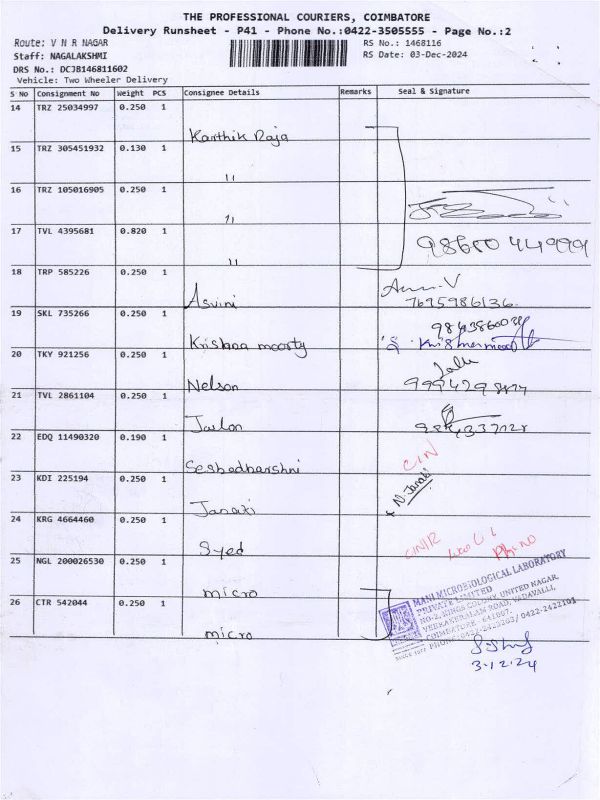 THE PROFESSIONAL COURIERS, COIMBATORE
Delivery Runsheet - P41 - Phone No.:0422-3505555 - Page No.:2
Route: V N R NAGAR
RS No.: 1468116
Staff: NAGALAKSHMI
RS Date: 03-Dec-2024
DRS No.: DCJB146811602
Vehicle: Two Wheeler Delivery
S No Consignment No Weight PCS Consignee Details Remarks Seal & Signature
14 TRZ 25034997 0.250 1
Karthik Raja
15 TRZ 305451932 0.130 1
"
16 TRZ 105016905 0.250 1
"
17 TVL 4395681 0.820 1
98650 44999
"
18 TRP 585226 0.250 1
Asvini
7695986136
19 SKL 735266 0.250 1
Krishna moorty
20 TKY 921256 0.250 1
Nelson
21 TVL 2861104 0.250 1
Jailon
22 EDQ 11490320 0.190 1
Seshadharshni
CIN
23 KDI 225194 0.250 1
N. Janaki
Janaki
24 KRG 4664460 0.250 1
Syed
25 NGL 200026530 0.250 1
micro
26 CTR 542044 0.250 1
micro
MANI MICROBIOLOGICAL LABORATORY
PRIVATE LIMITED
NO-2, KINGS COLONY, UNITED NAGAR,
VEERAKERALAM ROAD, VADAVALLI,
COIMBATORE - 641007.
SINCE 1977 PHONE: 0422-2423263 / 0422-2422101
3.12.24